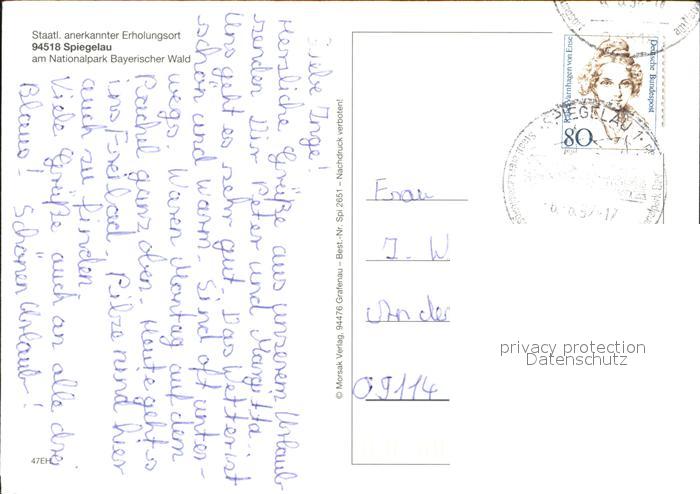 Staatl. anerkannter Erholungsort
94518 Spiegelau
am Nationalpark Bayerischer Wald
Liebe Inge!
Herzliche Grüße aus unserem Urlaub
senden Dir Peter und Margitta.
Uns geht es sehr gut. Das Wetter ist
schön und warm. Sind oft unter-
wegs. Waren Montag auf dem
Rachel ganz oben. Heute geht's
ins Freibad. Pilze sind hier
auch zu finden.
Viele Grüße auch an alle drei
Blaus! Schönen Urlaub!
47EH
© Morsak Verlag, 94476 Grafenau – Best.-Nr. Spi 2651 – Nachdruck verboten!
Deutsche Bundespost
Varnhagen von Ense
80
SPIEGELAU 1
6.97-17
Frau
I. W
An der
09114
privacy protection
Datenschutz